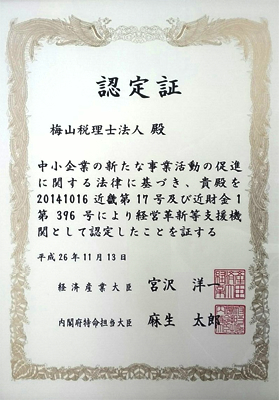 認定証
梅山税理士法人 殿
中小企業の新たな事業活動の促進
に関する法律に基づき、貴殿を
20141016近畿第17号及び近財金1
第396号により経営革新等支援機
関として認定したことを証する
平成26年11月13日
経済産業大臣 宮沢 洋一
内閣府特命担当大臣 麻生 太郎